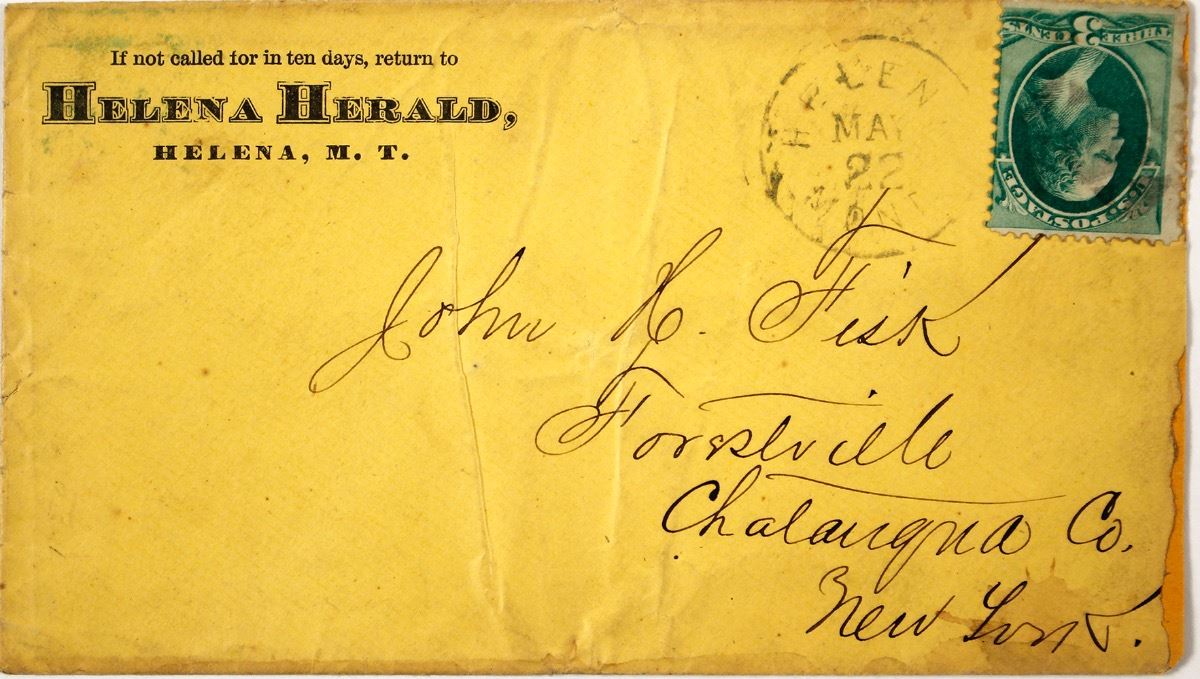 If not called for in ten days, return to
HELENA HERALD,
HELENA, M. T.
HELEN
MAY
22
MONT
THREE 3 CENTS
U.S. POSTAGE
John H. Fisk
Forestville
Chatauqua Co.
New York.